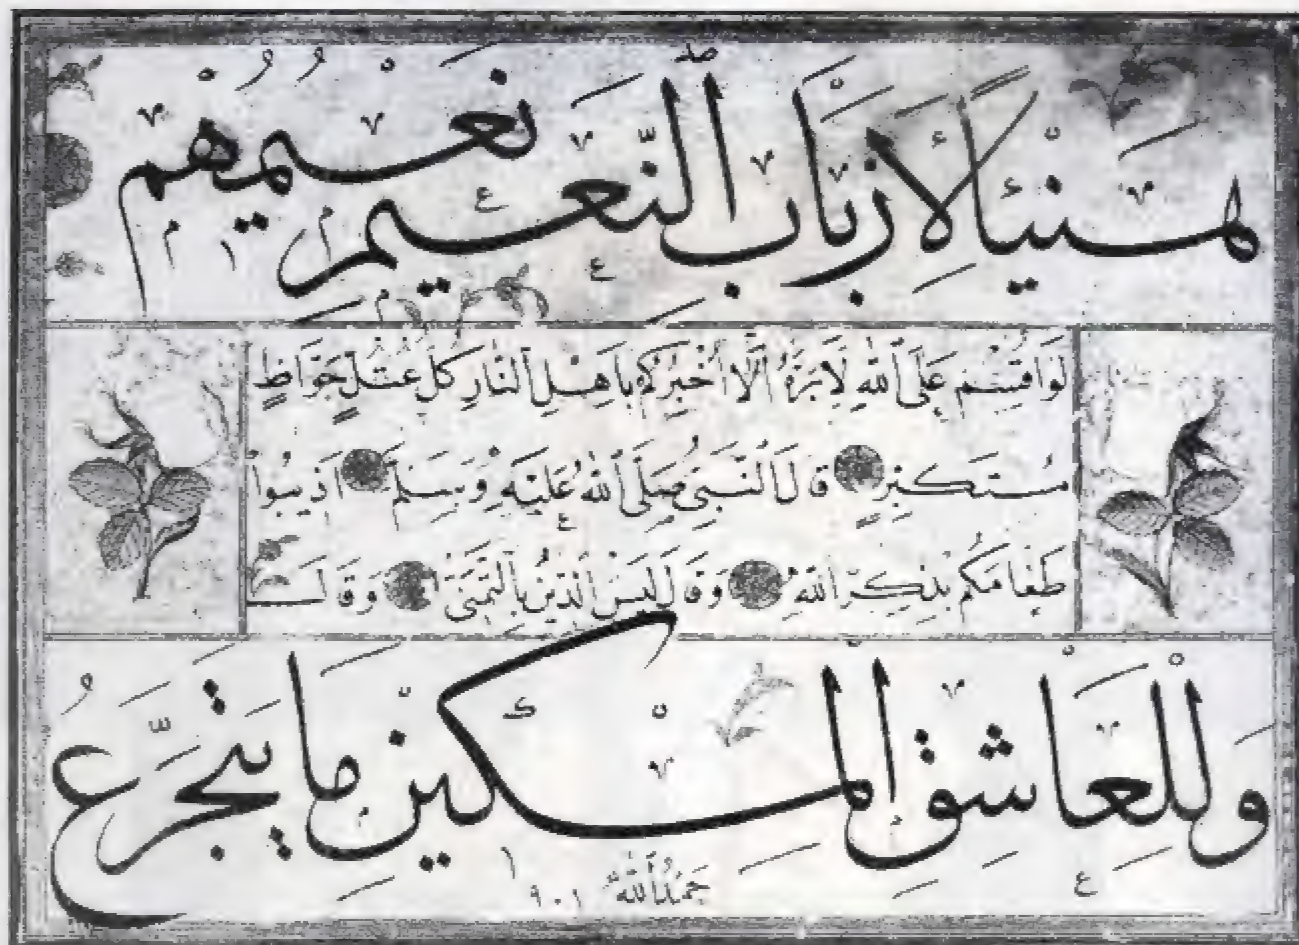 هَنِيئًا لِأَرْبَابِ النَّعِيمِ نَعِيمُهُمْ
لَوْ اَقْسَمَ عَلَى اللّٰهِ لَاَبَرَّهُ اَلَا اُخْبِرُكُمْ بِاَهْلِ النَّارِ كُلُّ عُتُلٍّ جَوَّاظٍ
مُسْتَكْبِرٍ قَالَ النَّبِيُّ صَلَّى اللّٰهُ عَلَيْهِ وَسَلَّمَ اَذِيبُوا
طَعَامَكُمْ بِذِكْرِ اللّٰهِ وَقَالَ لَيْسَ الدِّينُ بِالتَّمَنِّى وَقَالَ
وَلِلْعَاشِقِ الْمِسْكِينِ مَا يَتَجَرَّعُ
حَمْدُ اللّٰه ٩٠١